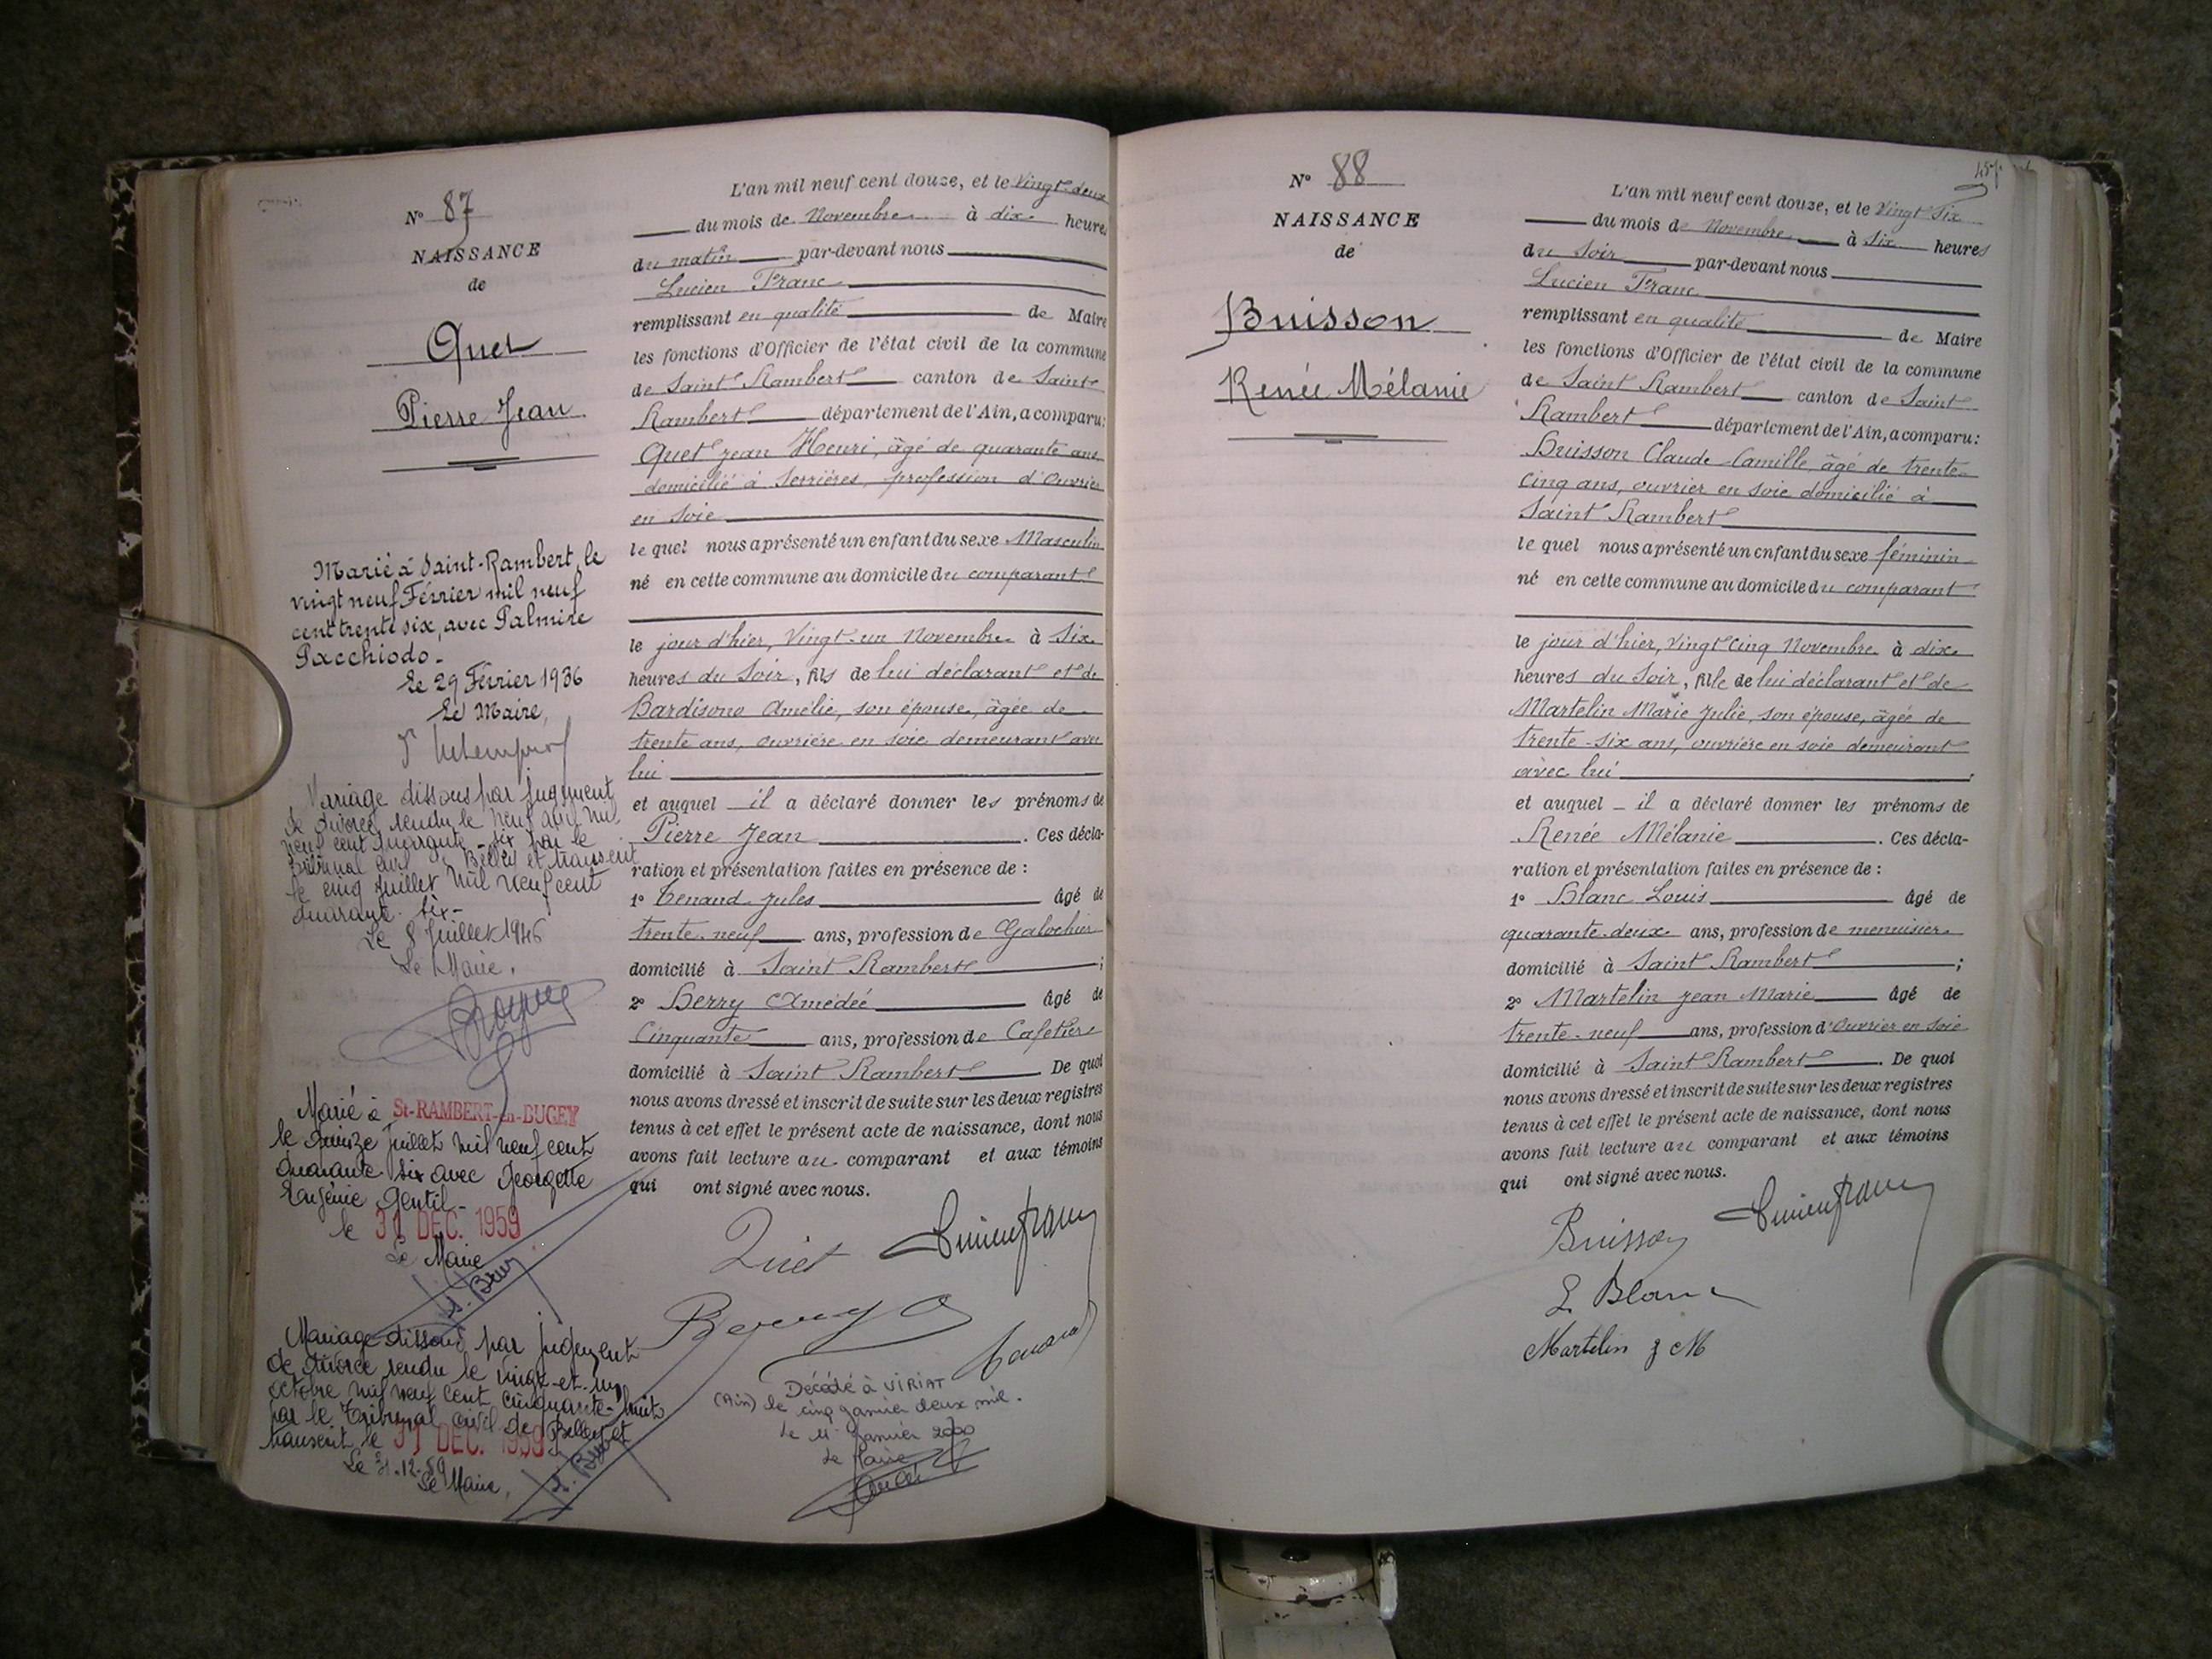 N° 87
NAISSANCE
de
Quet
Pierre Jean
Marié à Saint-Rambert, le
vingt neuf Février mil neuf
cent trente six, avec Palmire
Pacchiodo.
Le 29 Février 1936
Le Maire,
Mariage dissous par jugement
de divorce rendu le neuf mil
neuf cent quarante-six par le
tribunal civil Belley et transcrit
le cinq juillet mil neuf cent
quarante-six-
Le 8 Juillet 1946
Le Maire,
Marié à St-RAMBERT-en-BUGEY
le quinze juillet mil neuf cent
quarante six avec Georgette
Eugénie Gentil-
le 31 DEC. 1959
Le Maire
Mariage dissous par jugement
de divorce rendu le vingt-et-un
octobre mil neuf cent cinquante-huit
par le Tribunal civil de Belley et
transcrit le 31 DEC. 1959
Le 31-12-59
Le Maire,
L'an mil neuf cent douze, et le Vingt-deux
du mois de Novembre à dix heures
du matin par-devant nous
Lucien Franc
remplissant en qualité de Maire
les fonctions d'Officier de l'état civil de la commune
de Saint Rambert canton de Saint
Rambert département de l'Ain, a comparu:
Quet Jean Henri, âgé de quarante ans
domicilié à Serrières, profession d'Ouvrier
en Soie
le quel nous a présenté un enfant du sexe Masculin
né en cette commune au domicile du comparant
le jour d'hier, Vingt-un Novembre à Six
heures du Soir, fils de lui déclarant et de
Bardisono Amélie, son épouse, âgée de
trente ans, ouvrière en soie demeurant avec
lui
et auquel il a déclaré donner les prénoms de
Pierre Jean. Ces décla-
ration et présentation faites en présence de :
1° Tenand Jules âgé de
trente-neuf ans, profession de Galochier
domicilié à Saint Rambert;
2° Berry Amédée âgé de
Cinquante ans, profession de Cafetier
domicilié à Saint Rambert. De quoi
nous avons dressé et inscrit de suite sur les deux registres
tenus à cet effet le présent acte de naissance, dont nous
avons fait lecture au comparant et aux témoins
qui ont signé avec nous.
Quet Lucien Franc
Décédé à VIRIAT
(Ain) le cinq janvier deux mil.
le 11 janvier 2000
Le Maire
N° 88
NAISSANCE
de
Buisson
Renée Mélanie
L'an mil neuf cent douze, et le Vingt Six
du mois de Novembre à Six heures
du Soir par-devant nous
Lucien Franc
remplissant en qualité de Maire
les fonctions d'Officier de l'état civil de la commune
de Saint Rambert canton de Saint
Rambert département de l'Ain, a comparu:
Buisson Claude Camille, âgé de trente-
cinq ans, ouvrier en soie domicilié à
Saint Rambert
le quel nous a présenté un enfant du sexe féminin
né en cette commune au domicile du comparant
le jour d'hier, Vingt cinq Novembre à dix
heures du Soir, fille de lui déclarant et de
Martelin Marie Julie, son épouse, âgée de
trente-six ans, ouvrière en soie demeurant
avec lui
et auquel il a déclaré donner les prénoms de
Renée Mélanie. Ces décla-
ration et présentation faites en présence de :
1° Blanc Louis âgé de
quarante-deux ans, profession de menuisier
domicilié à Saint Rambert;
2° Martelin Jean Marie âgé de
trente-neuf ans, profession d'Ouvrier en Soie
domicilié à Saint Rambert. De quoi
nous avons dressé et inscrit de suite sur les deux registres
tenus à cet effet le présent acte de naissance, dont nous
avons fait lecture au comparant et aux témoins
qui ont signé avec nous.
Buisson Lucien Franc
L. Blanc
Martelin J M